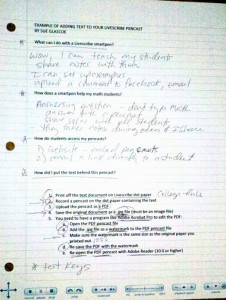 EXAMPLE OF ADDING TEXT TO YOUR LIVESCRIBE PENCAST
BY SUE GLASCOE
What can I do with a Livescribe smartpen?
Wow, I can teach my students
share notes with them
I can set up
upload a comment to facebook, email
How does a smartpen help my math students?
Answering question - don't type math
answer with a pencast
share with students
they take notes during
How do students access my pencasts?
1) website - embed pencasts
2) email a link to a student
How did I put the text behind this pencast?
Print off the text document on Livescribe dot paper
College Rule
Record a pencast on the dot paper containing the text
Upload the pencast as a PDF
Save the original document as a .jpg file (must be an image file)
You need to have a program like Adobe Acrobat Pro to edit the PDF:
Open the PDF pencast file
Add the .jpg file as a watermark to the PDF pencast file
Make sure the watermark is the same size as the original paper you
printed on
Re-save the PDF with the watermark
Re-open the PDF pencast with Adobe Reader (10.0 or higher)
* test keys